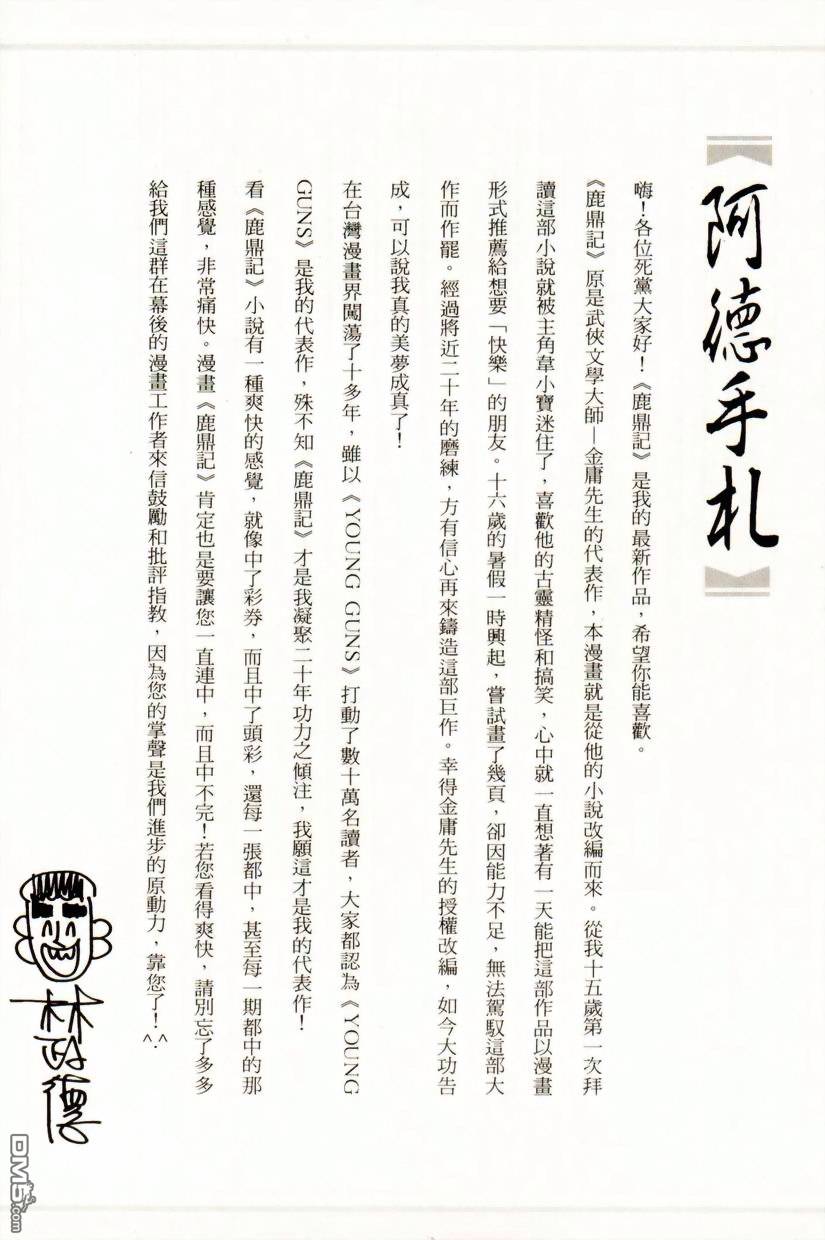 阿德手札
嗨！各位死黨大家好！《鹿鼎記》是我的最新作品，希望你能喜歡。
《鹿鼎記》原是武俠文學大師—金庸先生的代表作，本漫畫就是從他的小說改編而來。從我十五歲第一次拜
讀這部小說就被主角韋小寶迷住了，喜歡他的古靈精怪和搞笑，心中就一直想著有一天能把這部作品以漫畫
形式推薦給想要「快樂」的朋友。十六歲的暑假一時興起，嘗試畫了幾頁，卻因能力不足，無法駕馭這部大
作而作罷。經過將近二十年的磨練，方有信心再來鑄造這部巨作。幸得金庸先生的授權改編，如今大功告
成，可以說我真的美夢成真了！
在台灣漫畫界闖蕩了十多年，雖以《YOUNG GUNS》打動了數十萬名讀者，大家都認為《YOUNG
GUNS》是我的代表作，殊不知《鹿鼎記》才是我凝聚二十年功力之傾注，我願這才是我的代表作！
看《鹿鼎記》小說有一種爽快的感覺，就像中了彩券，而且中了頭彩，還每一張都中，甚至每一期都中的那
種感覺，非常痛快。漫畫《鹿鼎記》肯定也是要讓您一直連中，而且中不完！若您看得爽快，請別忘了多多
給我們這群在幕後的漫畫工作者來信鼓勵和批評指教，因為您的掌聲是我們進步的原動力，靠您了！^.^
林政德
DM5.com